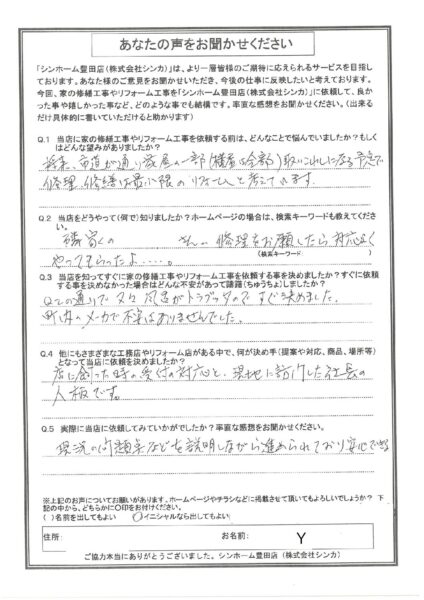 あなたの声をお聞かせください
「シンホーム豊田店(株式会社シンカ)」は、より一層皆様のご期待に応えられるサービスを目指し
ております。あなた様のご意見をお聞かせいただき、今後の仕事に反映したいと考えております。
今回、家の修繕工事やリフォーム工事を「シンホーム豊田店(株式会社シンカ)」に依頼して、良かっ
た事や嬉しかった事など、どのような事でも結構です。率直な感想をお聞かせください。(出来るだ
け具体的に書いていただけると助かります)
Q.1 当店に家の修繕工事やリフォーム工事を依頼する前は、どんなことで悩んでいましたか?もしく
はどんな望みがありましたか?
将来、市道が通り家屋の一部(種者は全部)取りこわしになる予定で
修理、修繕は最小限のリフォームと考えています。
Q.2 当店をどうやって(何で)知りましたか?ホームページの場合は、検索キーワードも教えてくださ
い。
隣りの さんが修理をお願いしたら対応良く
やってもらったよ・・・・。
(検索キーワード )
Q.3 当店を知ってすぐに家の修繕工事やリフォーム工事を依頼する事を決めましたか?すぐに依頼
する事を決めなかった場合はどんな不安があって躊躇(ちゅうちょ)しましたか?
Q2の通りで 風呂がトラブッタのですぐ決めました。
町内の で不安はありませんでした。
Q.4 他にもさまざまな工務店やリフォーム店がある中で、何が決め手(提案や対応、商品、場所等)
となって当店に依頼を決めましたか?
店に伺った時の受付の対応と、現地に訪問した社長の
人柄です。
Q.5 実際に当店に依頼してみていかがでしたか?率直な感想をお聞かせください。
現況の問題点などを説明しながら進められており安心できる
※上記のお声についてお願いがあります。ホームページやチラシなどに掲載させて頂いてもよろしいでしょうか? 下
記の中から、どちらかに〇印をお付けください。
( )名前を出してもよい (〇)イニシャルなら出してもよい
住所: お名前: Y
ご協力本当にありがとうございました。シンホーム豊田店 (株式会社シンカ)